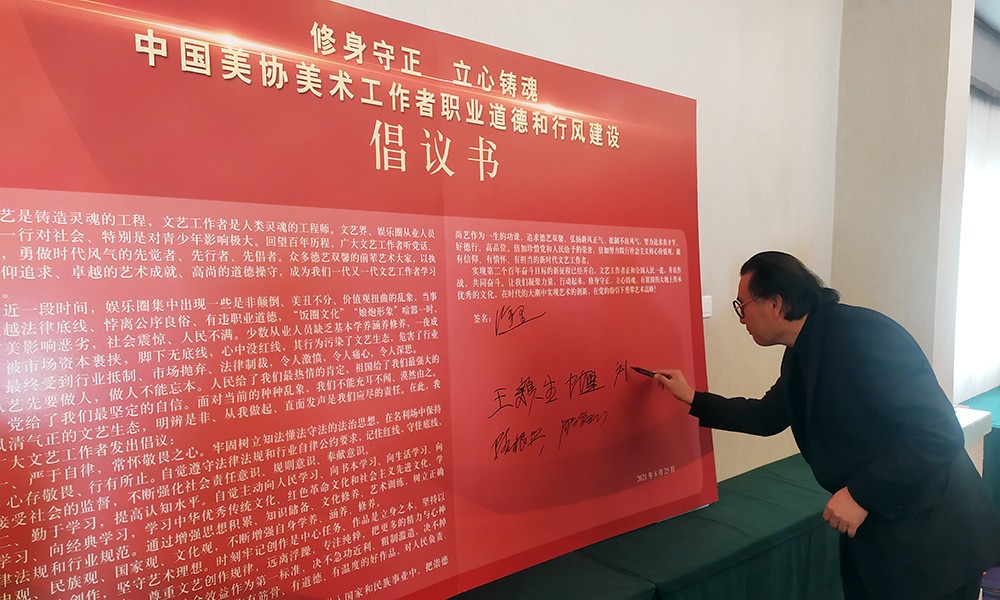 修身守正 立心铸魂
中国美协美术工作者职业道德和行风建设
倡议书
艺是铸造灵魂的工程，文艺工作者是人类灵魂的工程师。文艺界、娱乐圈从业人员
一行对社会、特别是对青少年影响极大。回望百年历程，广大文艺工作者听党话、
，勇做时代风气的先觉者、先行者、先倡者。众多德艺双馨的前辈艺术家，以执
仰追求、卓越的艺术成就、高尚的道德操守，成为我们一代又一代文艺工作者学习
近一段时间，娱乐圈集中出现一些是非颠倒、美丑不分、价值观扭曲的乱象，当事
越法律底线、悖离公序良俗、有违职业道德，“饭圈文化”“娘炮形象”喧嚣一时，
美影响恶劣，社会震惊、人民不满。少数从业人员缺乏基本学养涵养修养，一夜成
被市场资本裹挟，脚下无底线，心中没红线，其行为污染了文艺生态，危害了行业
最终受到行业抵制、市场抛弃、法律制裁，令人激愤，令人痛心，令人深思。
艺先要做人，做人不能忘本。人民给了我们最热情的肯定，祖国给了我们最强大的
党给了我们最坚定的自信。面对当前的种种乱象，我们不能充耳不闻、漠然由之。
风清气正的文艺生态，明辨是非、从我做起、直面发声是我们应尽的责任。在此，我
大文艺工作者发出倡议：
一、严于自律，常怀敬畏之心。牢固树立知法懂法守法的法治思想，在名利场中保持
心存敬畏、行有所止。自觉遵守法律法规和行业自律公约要求，记住红线，守住底线，
接受社会的监督，不断强化社会责任意识、规则意识、奉献意识。
二、勤于学习，提高认知水平。自觉主动向人民学习、向书本学习、向生活学习、向
学习、向经典学习，学习中华优秀传统文化、红色革命文化和社会主义先进文化，学
律法规和行业规范。通过增强思想积累、知识储备、文化修养、艺术训练，树立正确
史观、民族观、国家观、文化观，不断增强自身学养、涵养、修养。
创作，坚守艺术理想。时刻牢记创作是中心任务，作品是立身之本，坚持以
尊重文艺创作规律，远离浮躁，专注纯粹，把更多的精力与心神
会效益作为第一标准，决不急功近利，粗制滥造，决不掉
有筋骨、有道德、有温度的好作品，对人民负责、
国家和民族事业中，把崇德
尚艺作为一生的功课，追求德艺双馨，弘扬新风正气，抵制不良风气，努力追求真才学、
好德行、高品位，倍加珍惜党和人民给予的荣誉，倍加努力践行社会主义核心价值观，做
有信仰、有情怀、有担当的新时代文艺工作者。
实现第二个百年奋斗目标的新征程已经开启，文艺工作者正和全国人民一道，并肩作
战，共同奋斗。让我们凝聚力量，行动起来，修身守正，立心铸魂，在祖国的大地上热承
优秀的文化，在时代的大潮中实现艺术的创新，在党的指引下勇攀艺术高峰！
签名：
王颖生
刘
陈根
2021年8月25日